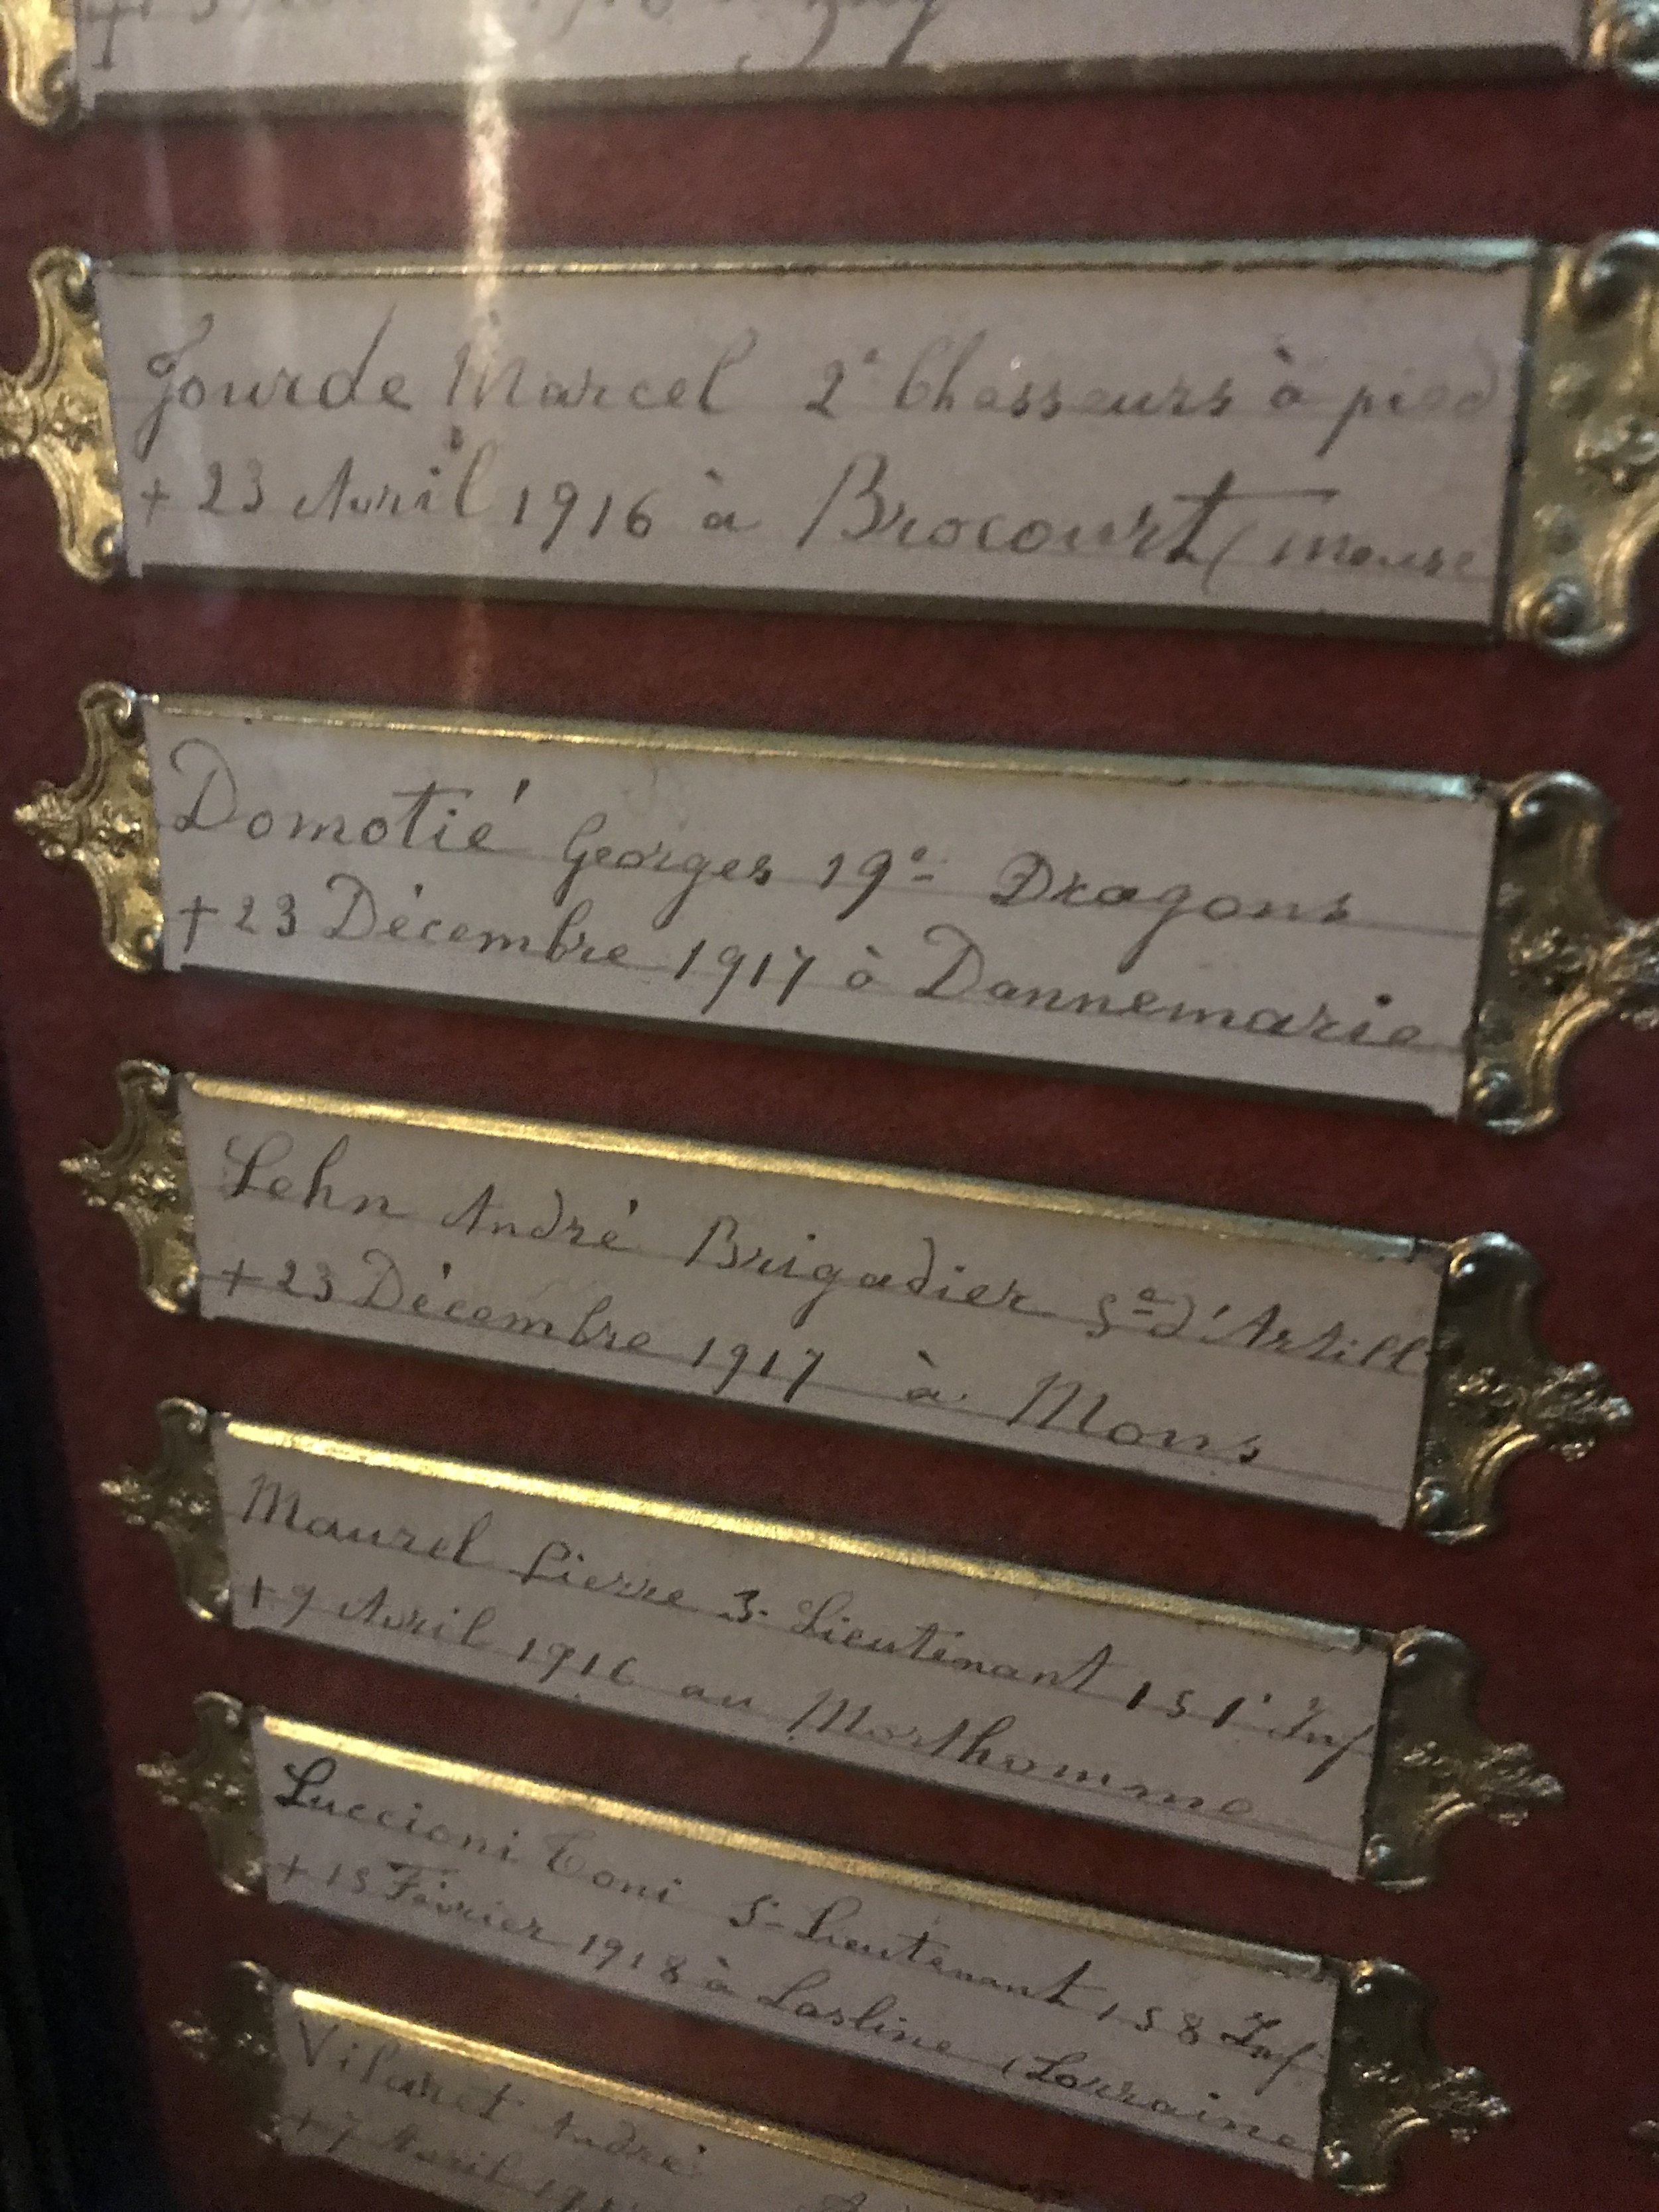 1916
Jourde Marcel 2e Chasseurs à pied
+ 23 Avril 1916 à Brocourt (Meuse
Domotié Georges 19e Dragons
+ 23 Décembre 1917 à Dannemarie
Lehn André Brigadier 5e d'Artill
+ 23 Décembre 1917 à Mons
Maurel Pierre S. Lieutenant 151e Inf
+ 9 Avril 1916 au Morthomme
Luccioni Toni S. Lieutenant 158 Inf
+ 15 Février 1918 à Lasline (Lorraine
Vilaret André
+ 7 Avril